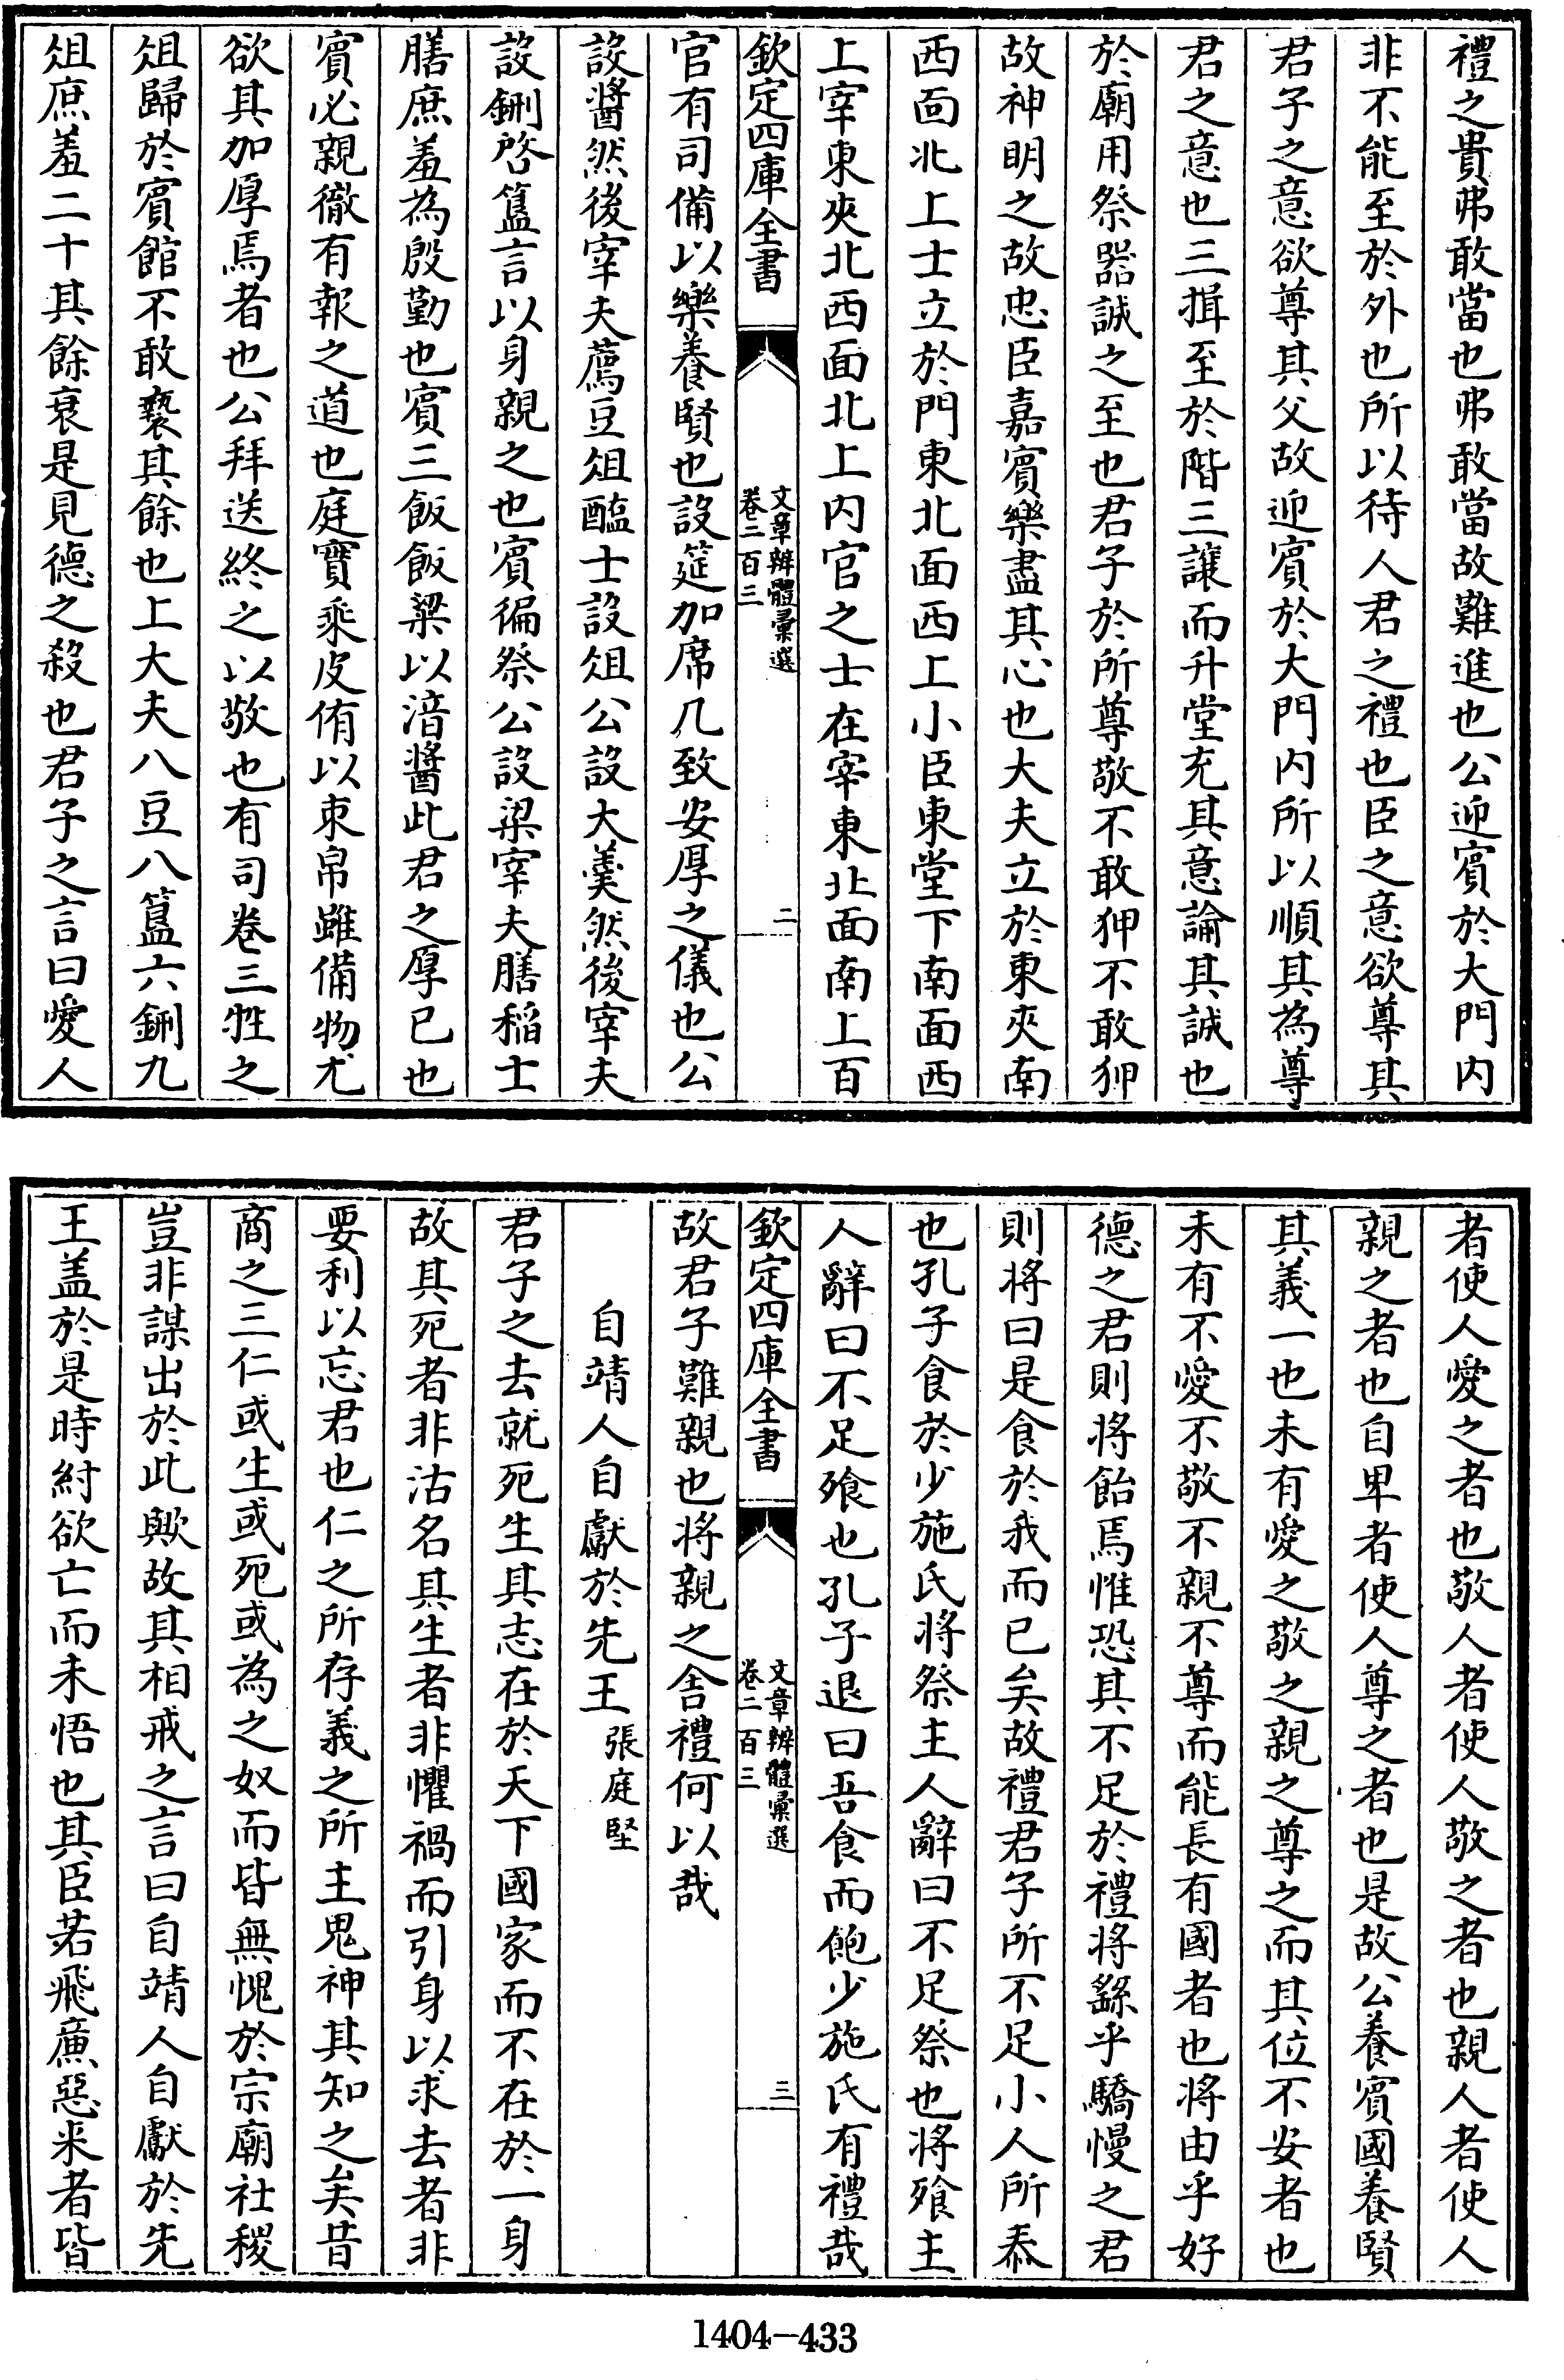 禮之貴弗敢當也弗敢當故難進也公迎賓於大門内
非不能至於外也所以待人君之禮也臣之意欲尊其
君子之意欲尊其父故迎賓於大門内所以順其為尊
君之意也三揖至於階三讓而升堂充其意諭其誠也
於廟用祭器誠之至也君子於所尊敬不敢狎不敢狎
故神明之故忠臣嘉賓樂盡其心也大夫立於東夾南
西面北上士立於門東北面西上小臣東堂下南面西
上宰東夾北西面北上内官之士在宰東北面南上百
欽定四庫全書
文章辨體彙選
卷二百三
二
官有司備以樂養賢也設筵加席几致安厚之儀也公
設醬然後宰夫薦豆俎醢士設俎公設大羮然後宰夫
設鉶啓簋言以身親之也賓徧祭公設梁宰夫膳稻士
膳庶羞為殷勤也賓三飯飯粱以湆醬此君之厚已也
賓必親徹有報之道也庭實乘皮侑以束帛雖備物尤
欲其加厚焉者也公拜送終之以敬也有司卷三牲之
俎歸於賓館不敢褻其餘也上大夫八豆八簋六鉶九
俎庶羞二十其餘衰是見德之殺也君子之言曰愛人
者使人愛之者也敬人者使人敬之者也親人者使人
親之者也自卑者使人尊之者也是故公養賓國養賢
其義一也未有愛之敬之親之尊之而其位不安者也
未有不愛不敬不親不尊而能長有國者也將由乎好
德之君則将飴焉惟恐其不足於禮将繇乎驕慢之君
則将曰是食於我而已矣故禮君子所不足小人所泰
也孔子食於少施氏将祭主人辭曰不足祭也將飱主
人辭曰不足飱也孔子退曰吾食而飽少施氏有禮哉
欽定四庫全書
文章辨體彙選
卷二百三
三
故君子難親也将親之舎禮何以哉
自靖人自獻於先王 張庭堅
君子之去就死生其志在於天下國家而不在於一身
故其死者非沽名其生者非懼禍而引身以求去者非
要利以忘君也仁之所存義之所主鬼神其知之矣昔
商之三仁或生或死或為之奴而皆無愧於宗廟社稷
豈非謀出於此歟故其相戒之言曰自靖人自獻於先
王盖於是時紂欲亡而未悟也其臣若飛亷惡来者皆
1404-433